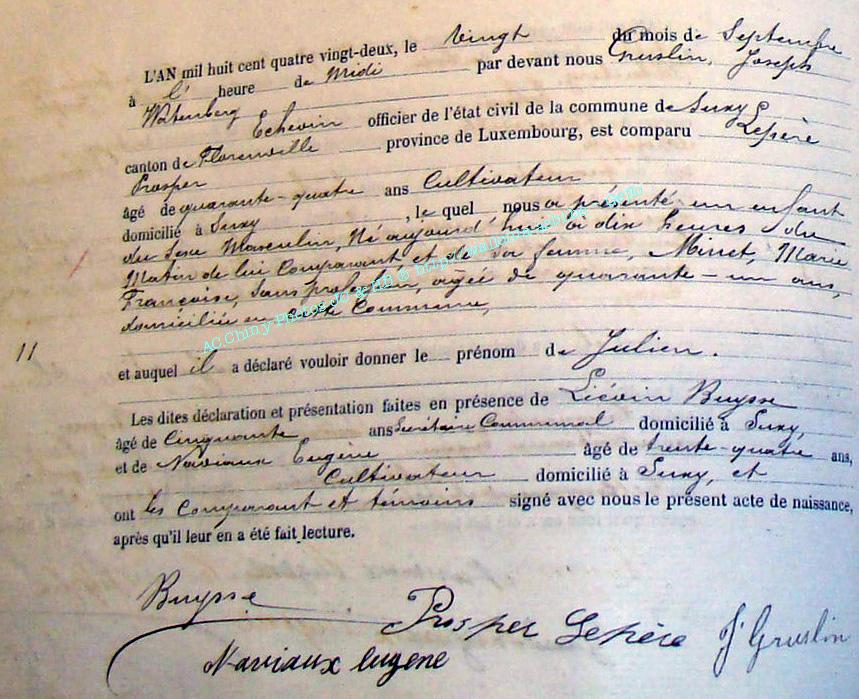 L'AN mil huit cent quatre vingt-deux, le vingt du mois de Septembre
à l' heure de Midi par devant nous Gruslin, Joseph
Watenberg Echevin officier de l'état civil de la commune de Suxy
canton de Florenville province de Luxembourg, est comparu Lepère
Prosper
âgé de quarante-quatre ans Cultivateur
domicilié à Suxy , le quel nous a présenté un enfant
du Sexe Masculin, Né aujourd'hui à dix heures du
Matin de lui Comparant et de sa femme, Minet, Marie
Françoise, Sans profession, agée de quarante-un ans,
domiciliée en cette Commune,
11
et auquel il a déclaré vouloir donner le prénom de Julien.
Les dites déclaration et présentation faites en présence de Liévin Buysse
âgé de Cinquante ans Secrétaire Communal domicilié à Suxy,
et de Naviaux Eugène âgé de trente-quatre ans,
Cultivateur domicilié à Suxy, et
ont les Comparant et témoins signé avec nous le présent acte de naissance,
après qu'il leur en a été fait lecture.
Buysse
Prosper Lepère J. Gruslin
Naviaux eugene
AC Chiny - Photos